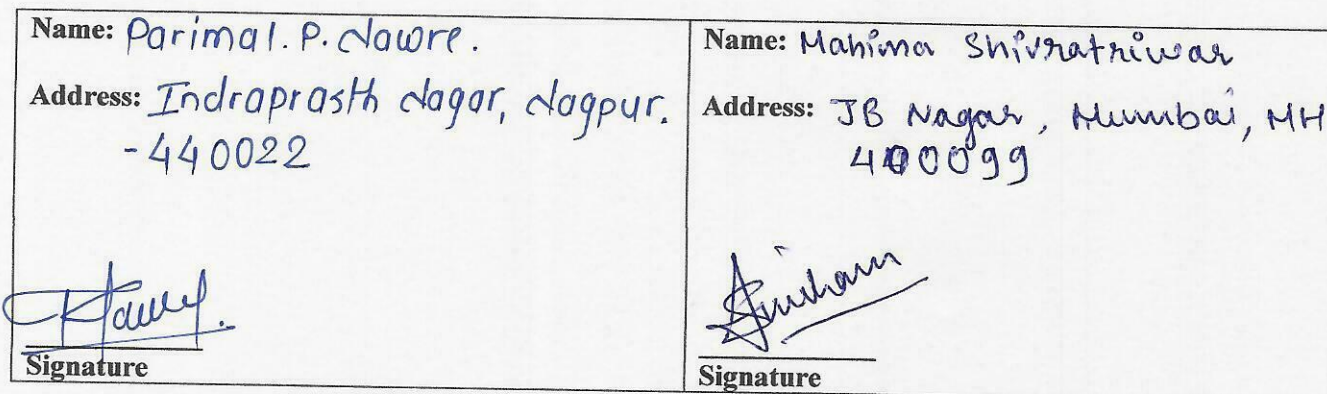 Name: Parimal. P. Nawre.
Address: Indraprasth Nagar, Nagpur.
- 440022
Signature
Name: Mahima Shivratriwar
Address: JB Nagar, Mumbai, MH
400099
Signature